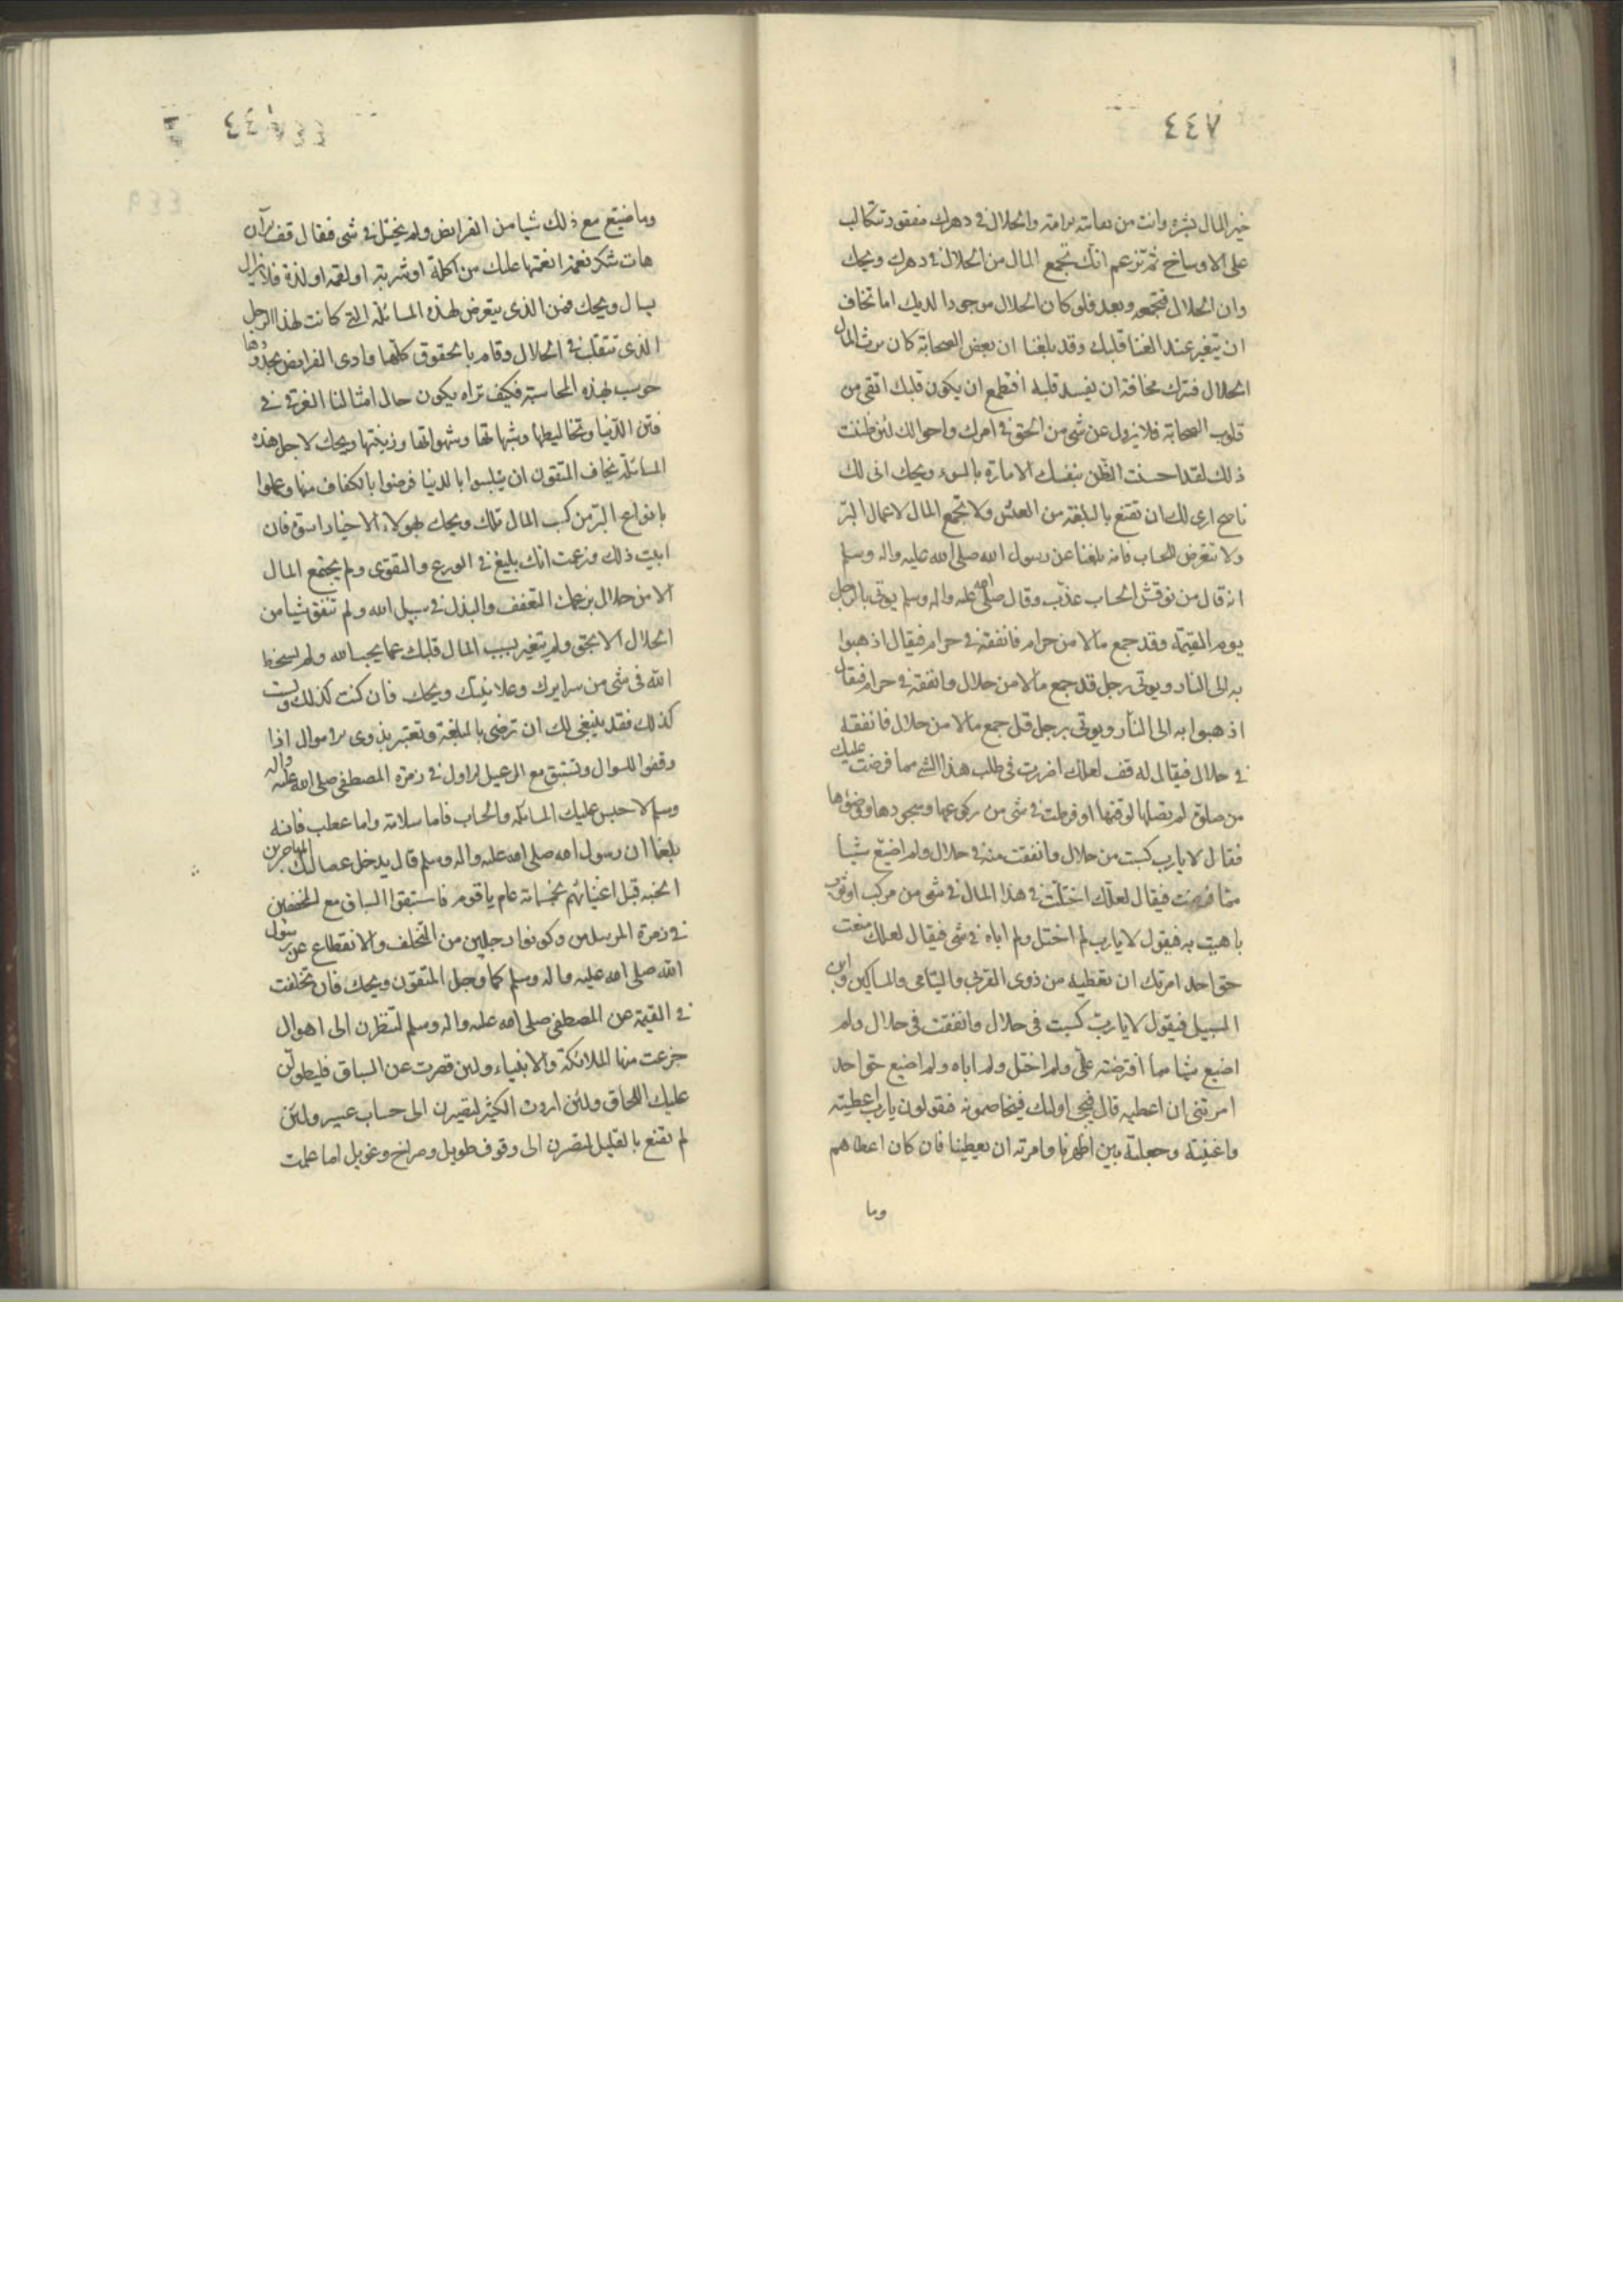 ٤٤٧
خير المال بشره وانت من دعابته برامته والحلال في دهرك مفقود تتكالب
على الاوساخ ثم تزعم انك تجمع المال من الحلال في دهرك ويحك
واين الحلال فتجمعه وبعد فلو كان الحلال موجودا لديك اما تخاف
ان يتغير عند الغنا قلبك وقد بلغنا ان بعض الصحابة كان يرث المال
الحلال فترك مخافة ان يفسد قلبه افتطمع ان يكون قلبك اتقى من
قلوب الصحابة فلا يزول عن شى من الحق في امرك واحوالك لئن ظننت
ذلك لقد احسنت الظن بنفسك الامارة بالسوء ويحك انى لك
ناصح ارى لك ان تقنع بالبلغة من العيش ولا تجمع المال لاعمال البر
ولا تتعرض للحساب فانه بلغنا عن رسول الله صلى الله عليه واله وسلم
انه قال من نوقش الحساب عذب وقال صلى الله عليه واله وسلم يوتى بالرجل
يوم القيمة وقد جمع مالا من حرام فانفقه في حرام فيقال اذهبوا
به الى النار ويوتى برجل قد جمع مالا من حلال وانفقه في حرام فيقال
اذهبوا به الى النار ويوتى برجل قد جمع مالا من حلال فانفقه
في حلال فيقال له قف لعلك اضررت في طلب هذا الشى مما فرضت عليك
من صلوة لم تصلها لوقتها او فرطت في شى من ركوعها وسجودها ووضوءها
فقال لا يارب كسبت من حلال وانفقت منه في حلال ولم اضيع شيا
مما فرضت فيقال لعلك اختلت في هذا المال في شى من مركب او ثوب
باهيت به فيقول لا يارب لم اختل ولم اباه في شى فيقال لعلك منعت
حق احد امرتك ان تعطيه من ذوى القربى واليتامى والمساكين وابن
السبيل فيقول لا يارب كسبت فى حلال وانفقت فى حلال ولم
اضيع شيا مما افترضته على ولم اختل ولم اباه ولم اضيع حق احد
امرتنى ان اعطيه قال فيجى اولئك فيخاصمونه فيقولون يارب اعطيته
واغنيته وجعلته بين اظهرنا وامرته ان يعطينا فان كان اعطاهم
وما
وما ضيع مع ذلك شيا من الفرايض ولم يختل في شى فقال قف الان
هات شكر نعمة انعمتها عليك من اكلة او شربة او لقمة او لذة فلا يزال
يسال ويحك فمن الذى يتعرض لهذه المسائلة التى كانت لهذا الرجل
الذى تتقلب في الحلال وقام بالحقوق كلها وادى الفرايض بحدودها
حوسب لهذه المحاسبة فكيف تراه يكون حال امثالنا الغرقى في
فتن الدنيا وتخاليطها وشبهاتها وشهواتها وزينتها ويحك لاجل هذه
المسائلة يخاف المتقون ان يتلبسوا بالدنيا فرضوا بالكفاف منها وعملوا
بانواع البر من كسب المال فلك ويحك بهولاء الاخيار اسوة فان
ابيت ذلك وزعمت انك بليغ في الورع والتقوى ولم يجتمع المال
الا من حلال بزعمك التعفف والبذل في سبيل الله ولم تنفق شيا من
الحلال الا بحق ولم يتغير بسبب المال قلبك عما يحب الله ولم يسخط
الله فى شى من سرايرك وعلانيتك ويحك فان كنت كذلك ولست
كذلك فقد ينبغى لك ان ترضى بالبلغة وتعتبر بذوى الاموال اذا
وقفوا للسوال وتستبق مع الرعيل الاول في زمرة المصطفى صلى الله عليه واله
وسلم لا حبس عليك المسائلة والحساب فاما سلامة واما عطب فانه
بلغنا ان رسول الله صلى الله عليه واله وسلم قال يدخل صعاليك المهاجرين
الجنه قبل اغنيائهم بخمسمائة عام يا قوم فاستبقوا السباق مع المخفين
في زمرة المرسلين وكونوا وجلين من التخلف والانقطاع عن رسول
الله صلى الله عليه واله وسلم كما وجل المتقون ويحك فان تخلفت
في القيمة عن المصطفى صلى الله عليه واله وسلم لتنظرن الى اهوال
جزعت منها الملائكة والانبياء ولين قصرت عن السباق فليطولن
عليك اللحاق ولئن اردت الكثير لتصيرن الى حساب عسير ولئن
لم تقنع بالقليل لتصرن الى وقوف طويل وصراخ وعويل اما علمت